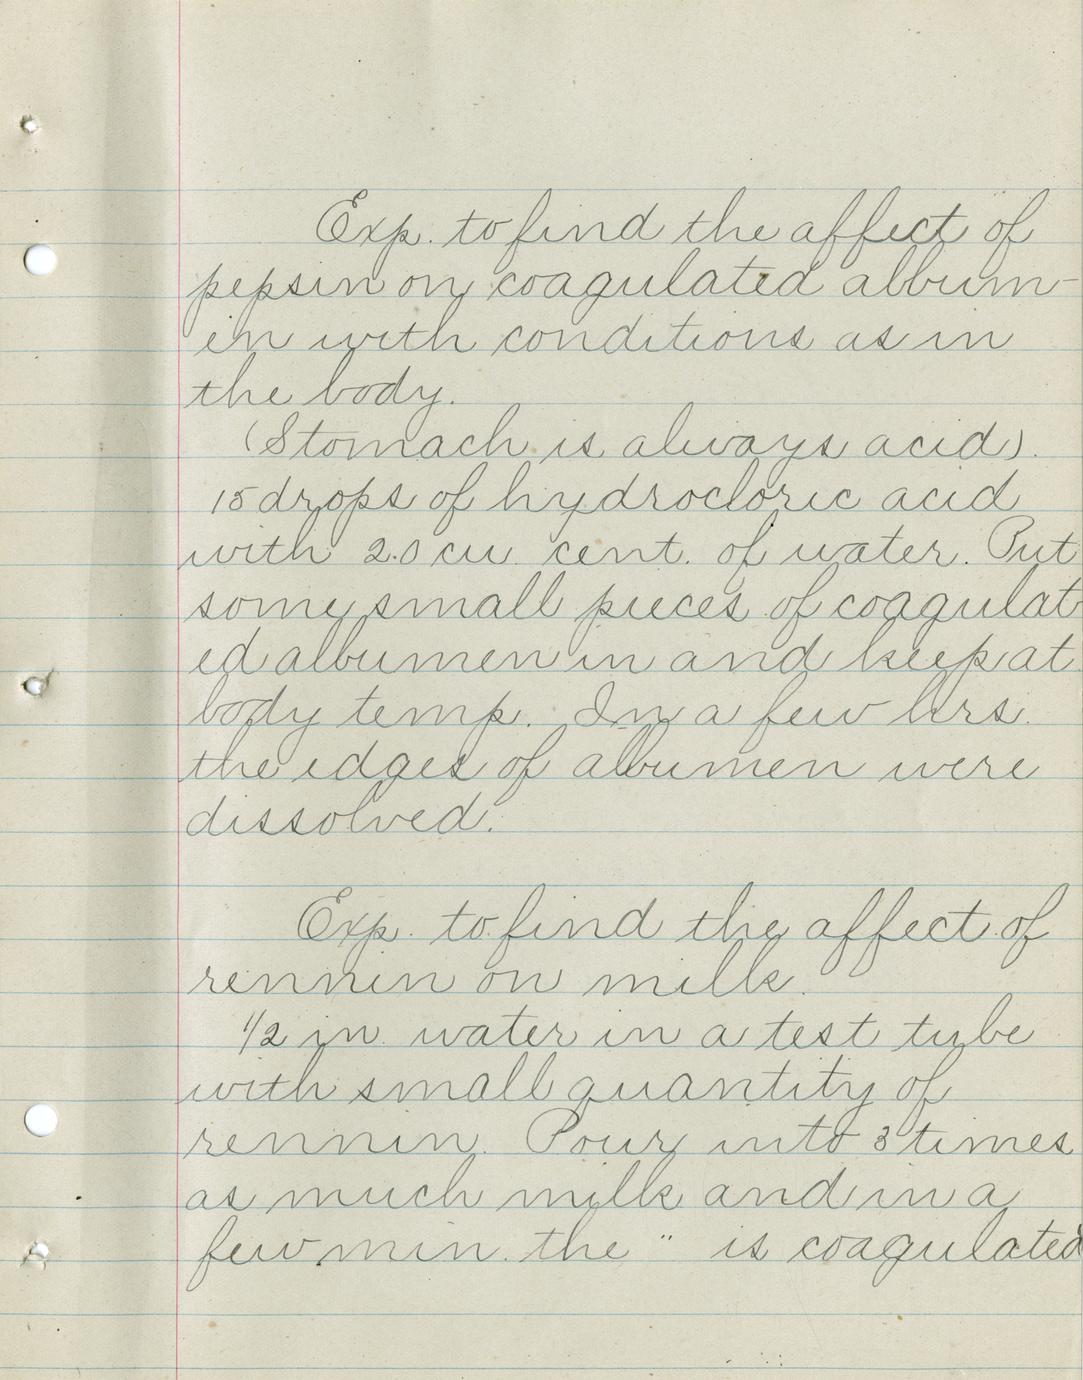 Exp. to find the affect of
pepsin on coagulated album-
in with conditions as in
the body.
(Stomach is always acid).
15 drops of hydrocloric acid
with 2.0 cu cent. of water. Put
some small pieces of coagulat
ed albumen in and keep at
body temp. In a few hrs.
the edges of albumen were
dissolved.
Exp. to find the affect of
rennin on milk.
1/2 in. water in a test tube
with small quantity of
rennin. Pour into 3 times
as much milk and in a
few min. the " is coagulated